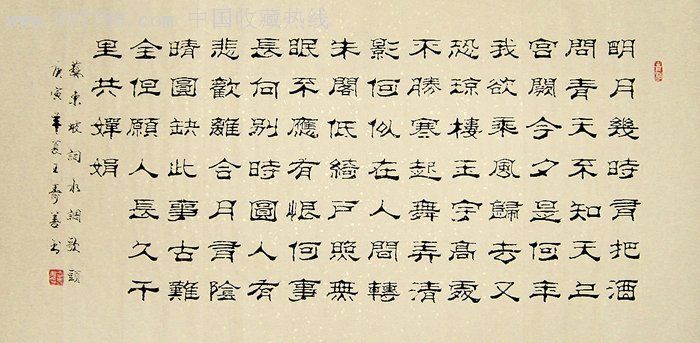 www.997788.com 中国收藏热线
明月幾時有把酒
問青天不知天上
宮闕今夕是何年
我欲乘風歸去又
恐瓊樓玉宇高處
不勝寒起舞弄清
影何似在人間轉
朱閣低綺戶照無
眠不應有恨何事
長向別時圓人有
悲歡離合月有陰
晴圓缺此事古難
全但願人長久千
里共嬋娟
蘇東坡詞水調歌頭
庚寅年夏王壽善書